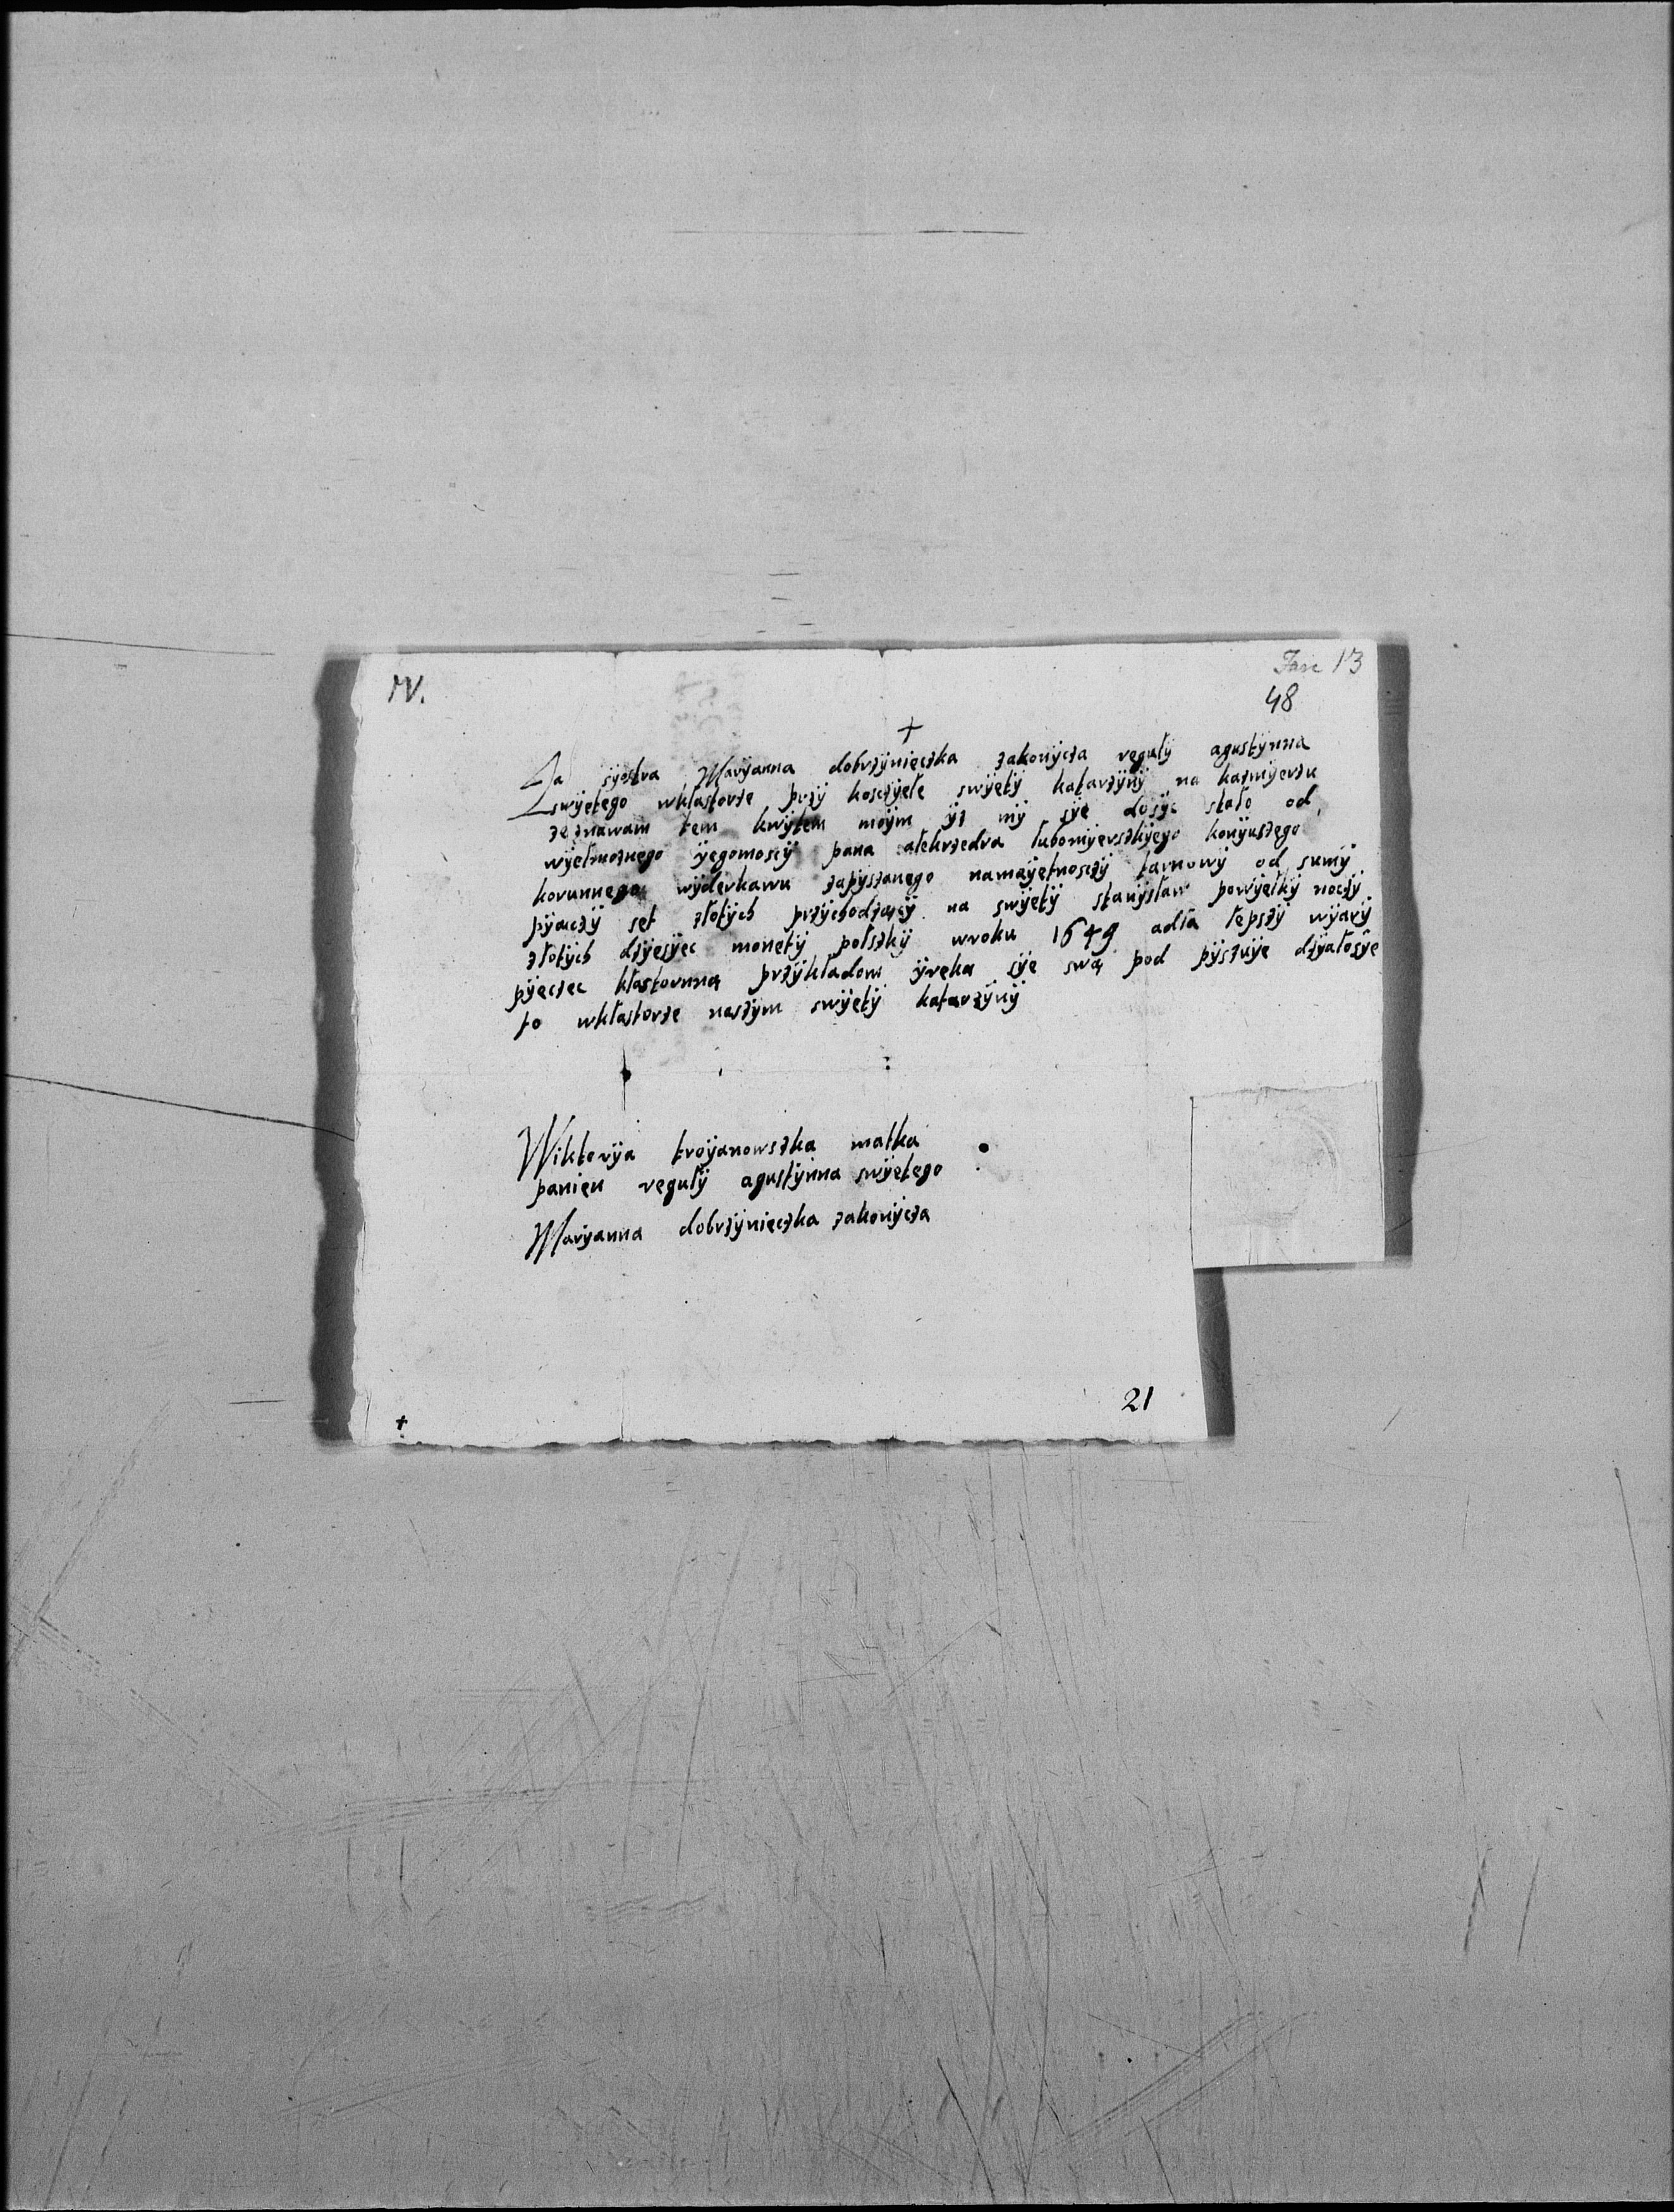 IV.
Jan 13
48
+
Ja syestra Maryanna dobrzynięczka zakonycza reguły agustynna
swyętego wkłastorze przy kosczyele swyęty katarzyny na kazmyerzu
zeznawam tem kwytem moym yz my sye dosyc stało od
wyelmoznego yegomoscy pana alekrzedra lubomyerszkyego konyuszego
korunnego wyderkawu zapyszanego namayętnosczy tarnowy od sumy
pyąaczy set złotych przychodzącÿ na swyęty stanysław powyelky noczy
złotych dzyesyęc monety polszky wroku 1649 adla lepszy wyary
pyęczec klastornną przykładom yreka sye swą pod pyszuye dzyałosye
to wkłastorze naszym swyęty katarzyny
Wikterya troyanowszka matka
panien reguły agustynna swyętego
Maryanna dobrzynięczka zakonycza
21
+